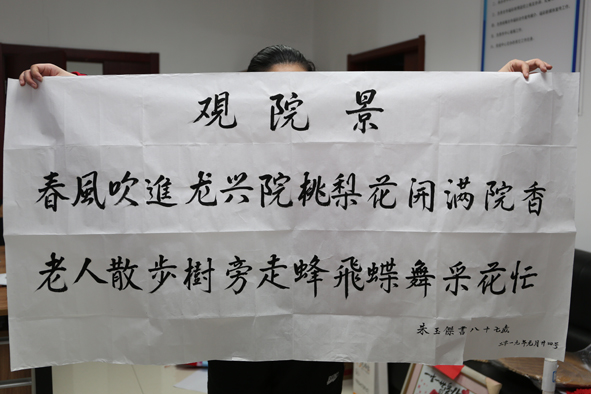 观院景
春風吹進龙兴院桃梨花開满院香
老人散步樹旁走蜂飛蝶舞采花忙
朱玉傑書八十七歲
二〇一九年元月廿四号